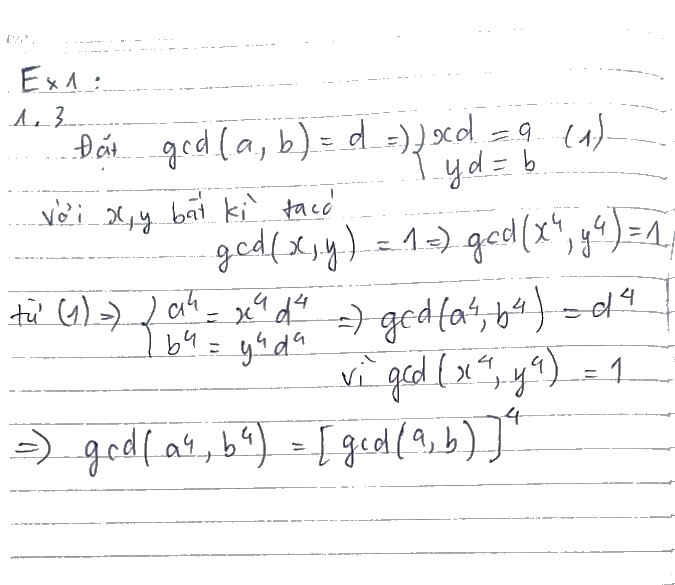 Ex1:
1.3
Đặt gcd(a, b) = d => { xd = a (1)
yd = b
với x, y bất kì ta có
gcd(x, y) = 1 => gcd(x⁴, y⁴) = 1
từ (1) => { a⁴ = x⁴ d⁴ => gcd(a⁴, b⁴) = d⁴
b⁴ = y⁴ d⁴
vì gcd(x⁴, y⁴) = 1
=> gcd(a⁴, b⁴) = [gcd(a, b)]⁴